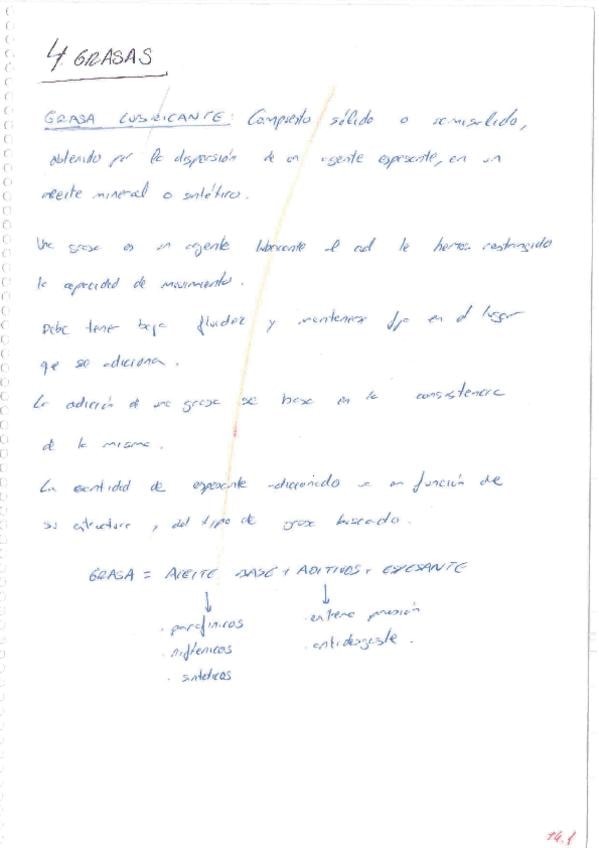 4. GRASAS
GRASA LUBRICANTE: Compuesto sólido o semisólido,
obtenido por la dispersión de un agente espesante, en un
aceite mineral o sintético.
Una grasa es un agente lubricante al cual le hemos restringido
la capacidad de movimiento.
Debe tener baja fluidez y mantenerse fijo en el lugar
que se adiciona.
La adición de una grasa se basa en la consistencia
de la misma.
La cantidad de espesante adicionado va en función de
su estructura y del tipo de grasa buscado.
GRASA = ACEITE BASE + ADITIVOS + ESPESANTE
↓ ↓
· parafínicos · extrema presión
· nafténicos · antidesgaste.
· sintéticos
14.1